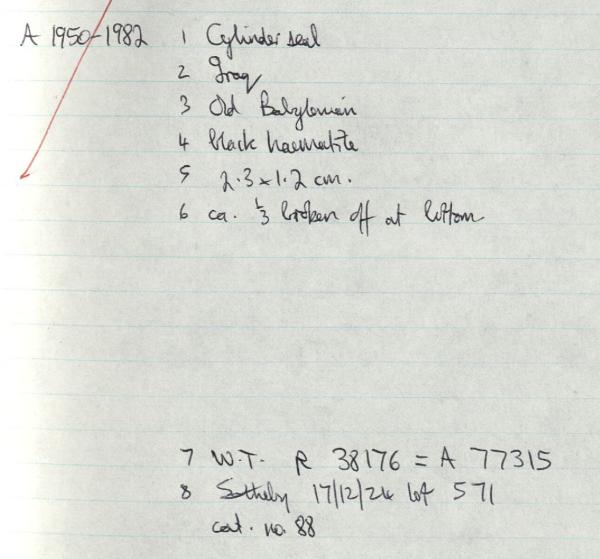 A 1950-1982 1 Cylinder seal
2 Iraq
3 Old Babylonian
4 black haematite
5 2.3 x 1.2 cm.
6 ca. ⅓ broken off at bottom
7 W.T. R 38176 = A 77315
8 Sotheby 17/12/24 lot 571
cat. no. 88